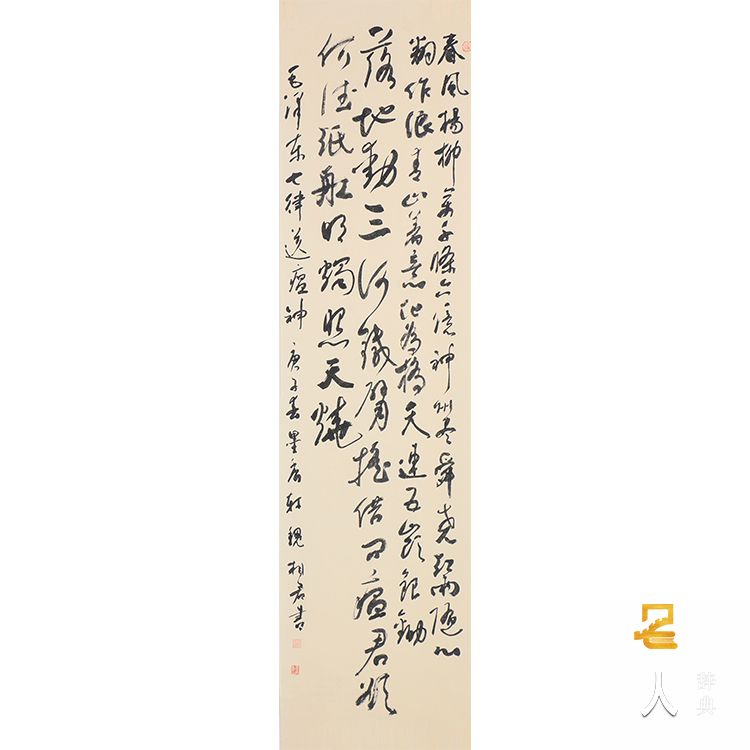 春风楊柳萬千條六億神州尽舜尧红雨随心
翻作浪青山着意化為橋天連五嶺銀鋤
落地動三河鐵臂搖借问瘟君欲
何往紙船明燭照天燒
毛泽东七律送瘟神 庚子春 魏相君書
名人
辞典